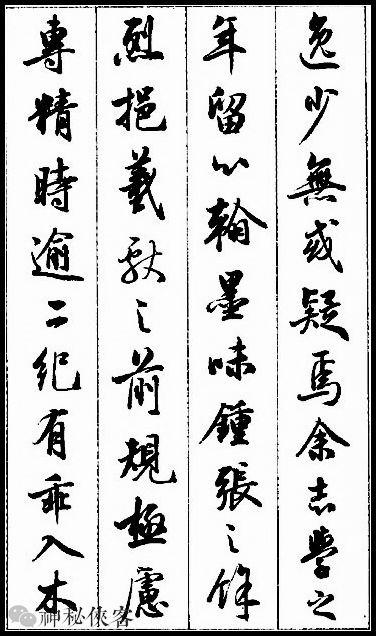 逸少無或疑焉余志學之
年留心翰墨味鍾張之餘
烈挹羲獻之前規極慮
專精時逾二紀有乖入木
神秘俠客